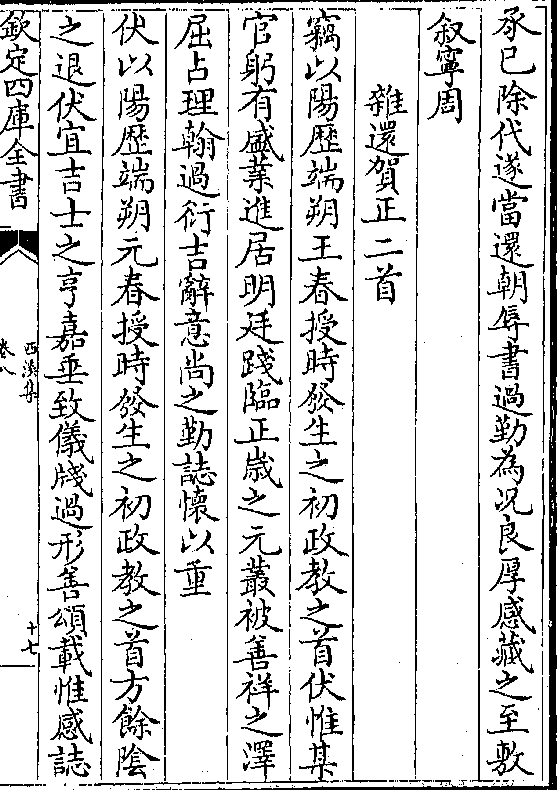 承已除代遂當還朝辱書過勤為况良厚感藏之至敷
叙寧周
雜還賀正二首
竊以陽歷端朔王春授時發生之初政教之首伏惟某
官躬有盛業進居明廷踐臨正歲之元叢被善祥之澤
屈占理翰過衍吉辭意尚之勤誌懷以重
伏以陽歷端朔元春授時發生之初政教之首方餘陰
之退伏宜吉士之亨嘉垂致儀牋過形善頌載惟感誌
欽定四庫全書
西溪集
卷八
十七